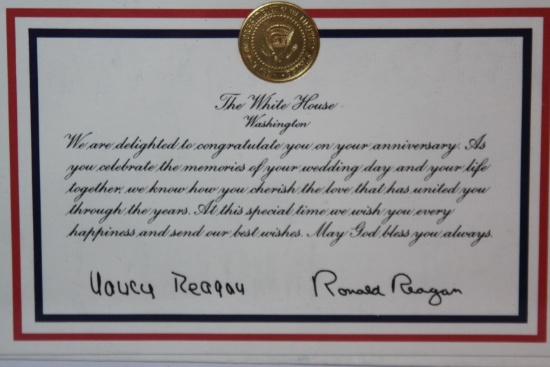 The White House
Washington
We are delighted to congratulate you on your anniversary. As
you celebrate the memories of your wedding day and your life
together, we know how you cherish the love that has united you
through the years. At this special time we wish you every
happiness and send our best wishes. May God bless you always.
Nancy Reagan Ronald Reagan